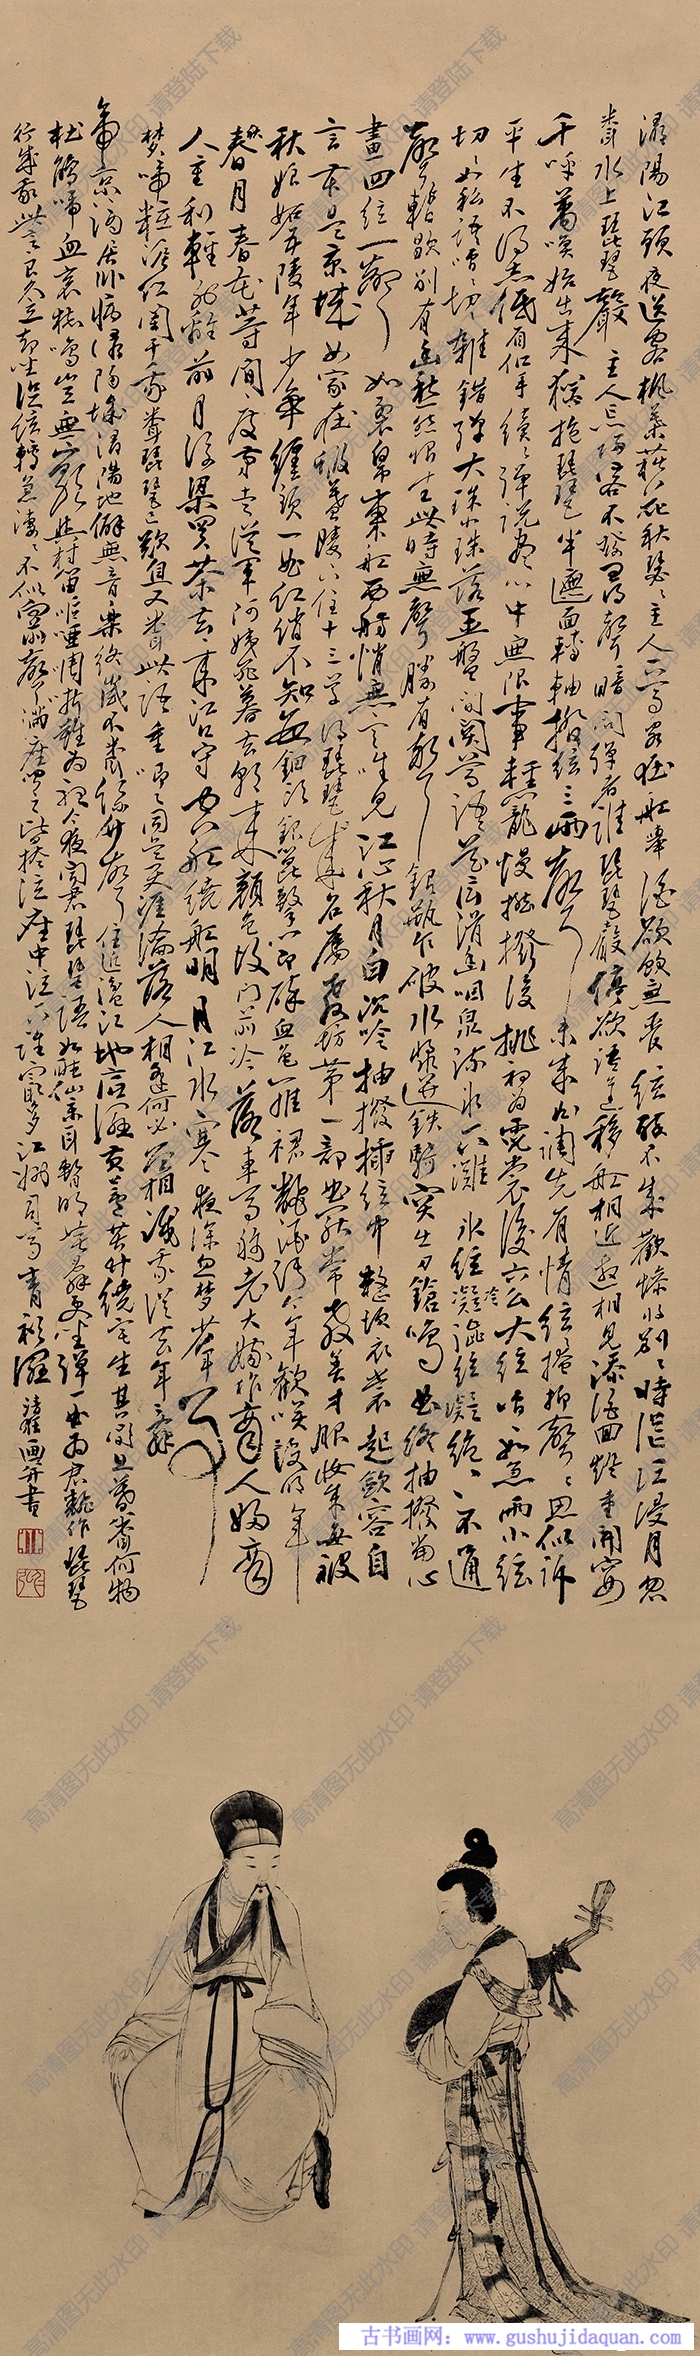 潯陽江頭夜送客楓葉荻花秋瑟瑟主人下馬客在船舉酒欲飲無管絃醉不成歡慘將別別時茫茫江浸月忽
聞水上琵琶聲主人忘歸客不發尋聲暗問彈者誰琵琶聲停欲語遲移船相近邀相見添酒回燈重開宴
千呼萬喚始出來猶抱琵琶半遮面轉軸撥絃三兩聲未成曲調先有情絃絃掩抑聲聲思似訴
平生不得志低眉信手續續彈說盡心中無限事輕攏慢撚撥復挑初為霓裳後六么大絃嘈嘈如急雨小絃
切切如私語嘈嘈切切雜錯彈大珠小珠落玉盤間關鶯語花底滑幽咽泉流冰下灘冰絃冷澁絃凝絶凝絶不通
聲暫歇別有幽愁暗恨生此時無聲勝有聲銀瓶乍破水漿迸鐵騎突出刀鎗鳴曲終抽撥當心
畫四絃一聲如裂帛東船西舫悄無言唯見江心秋月白沉吟抽撥插絃中整頓衣裳起歛容自
言本是京城女家在蝦蟇陵下住十三學得琵琶成名屬教坊第一部曲罷常教善才服妝成每被
秋娘妬五陵年少爭纏頭一曲紅綃不知數鈿頭銀篦擊節碎血色羅裙翻酒污今年歡笑復明年
秋月春花等閒度弟走從軍阿姨死暮去朝來顏色故門前冷落車馬稀老大嫁作商人婦商
人重利輕別離前月浮梁買茶去去來江口守空船繞船明月江水寒夜深忽夢少年事
夢啼粧淚紅闌干我聞琵琶已歎息又聞此語重唧唧同是天涯淪落人相逢何必曾相識我從去年辭
帝京謫居臥病潯陽城潯陽地僻無音樂終歲不聞絲竹聲住近湓江地底濕黃蘆苦竹繞宅生其間旦暮聞何物
杜鵑啼血哀猿鳴豈無山歌與村笛嘔啞嘲哳難為聽今夜聞君琵琶語如聽仙樂耳暫明莫辭更坐彈一曲為君翻作琵琶
行感我此言良久立却坐促絃轉急淒淒不似向前聲滿座聞之皆掩泣座中泣下誰最多江州司馬青衫濕 清狂畫并書
高清图无此水印 请登陆下载
古书画网：www.gushujidaquan.com